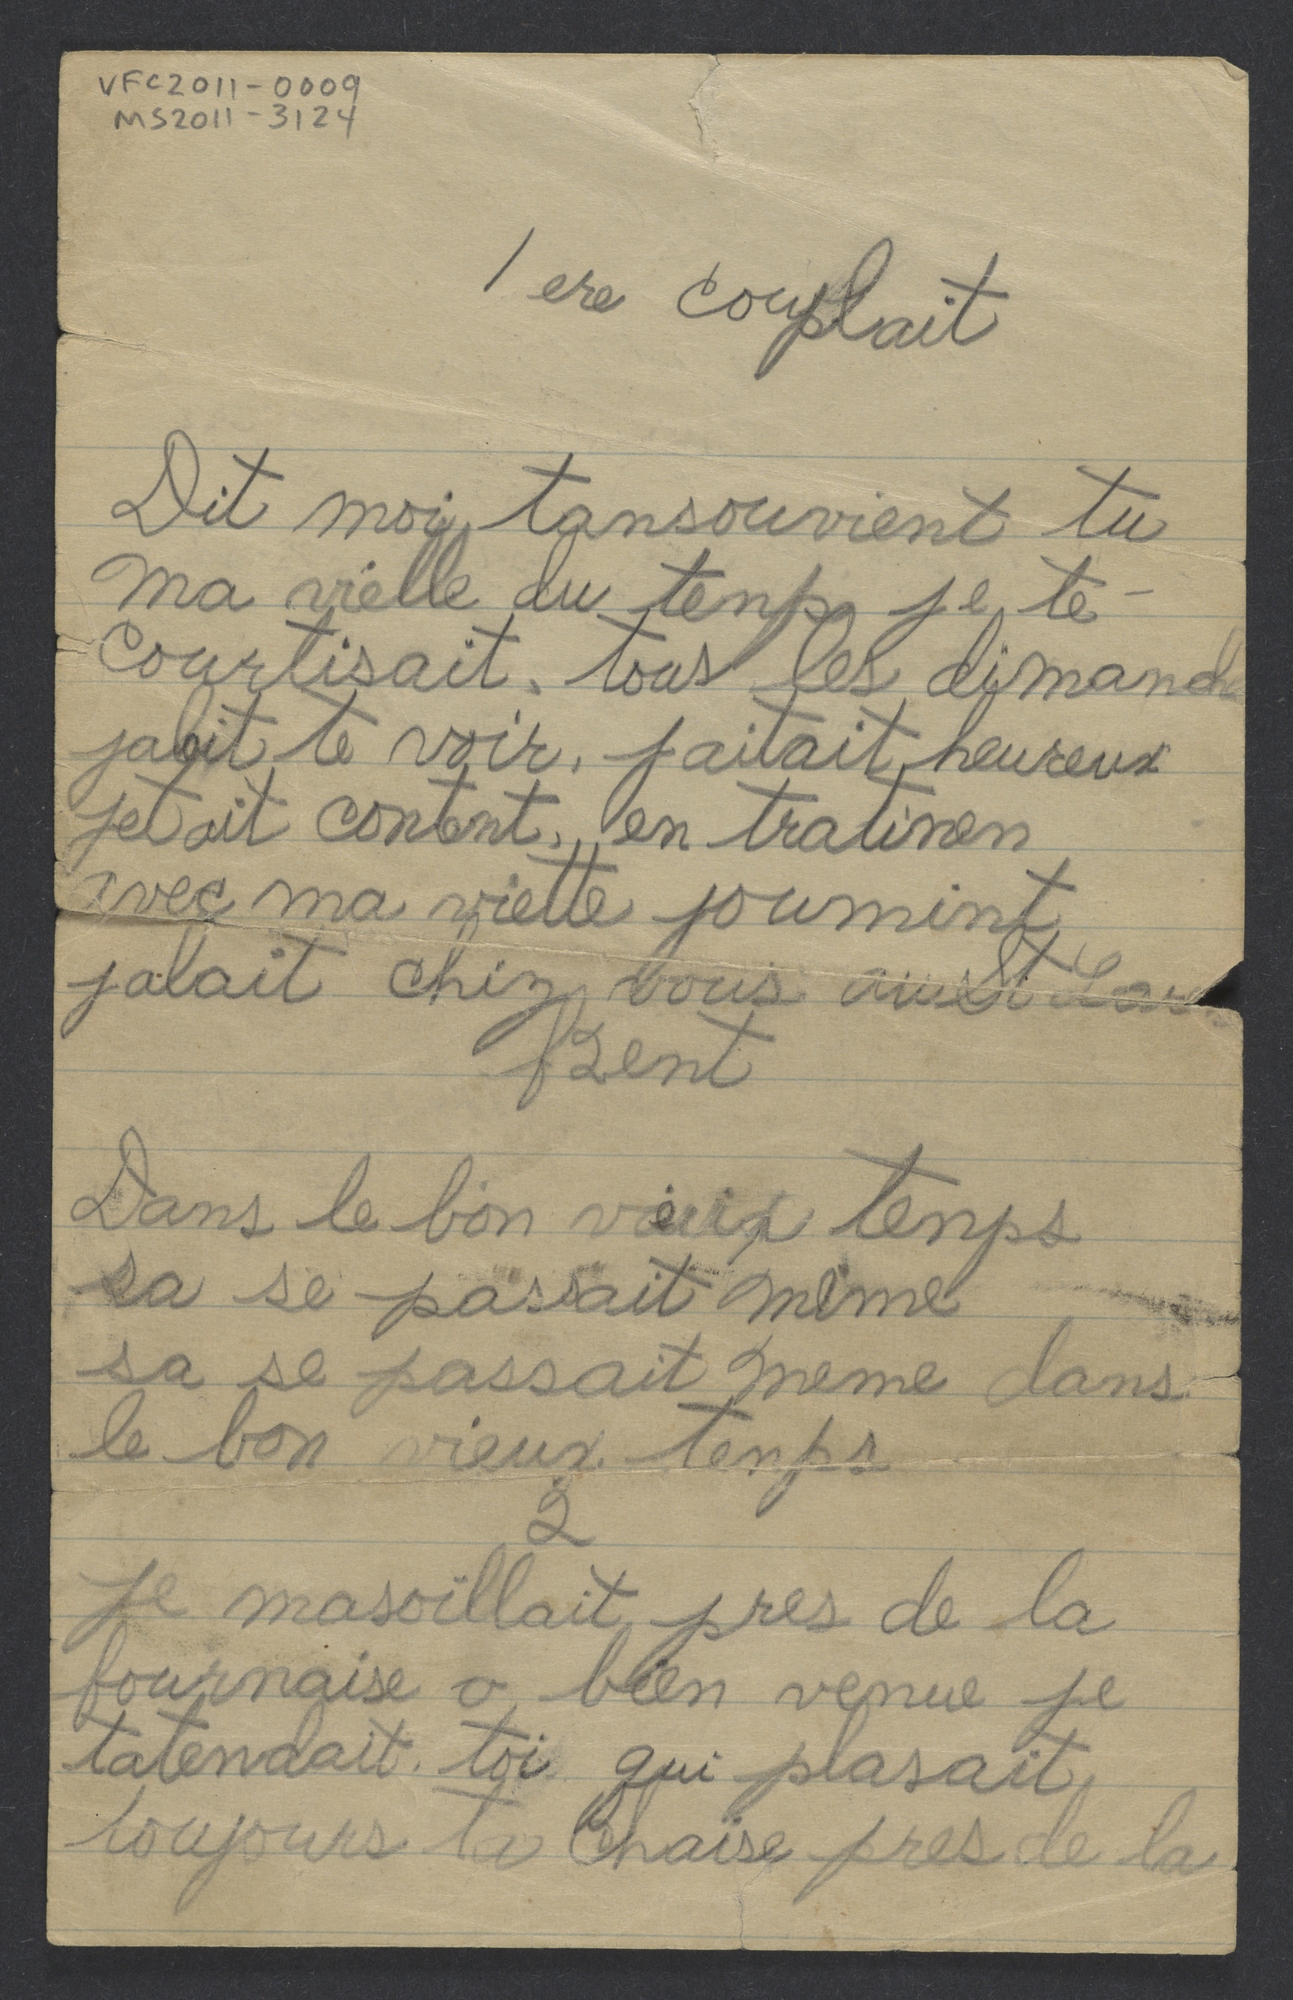 VFC2011-0009
MS2011-3124
1 ere couplait
Dit moi tansouvient tu
ma vielle du temp je te-
courtisait. tous les dimanch
jalait te voir. jaitait heureux
jetait content. en tratinen
avec ma viette joumint
jalait chiz vous
Rent
Dans le bon vieux temps
sa se passait même
sa se passait meme dans
le bon vieux temps
2
je masoillait pres de la
fournaise o bien venue je
tatendait. toi qui plasait
toujours ta chaise pres de la